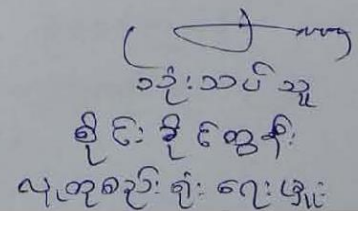 သုံးသပ်သူ
စိုင်းခိုင်ထွန်း
လူထုစည်းရုံးရေးမှူး